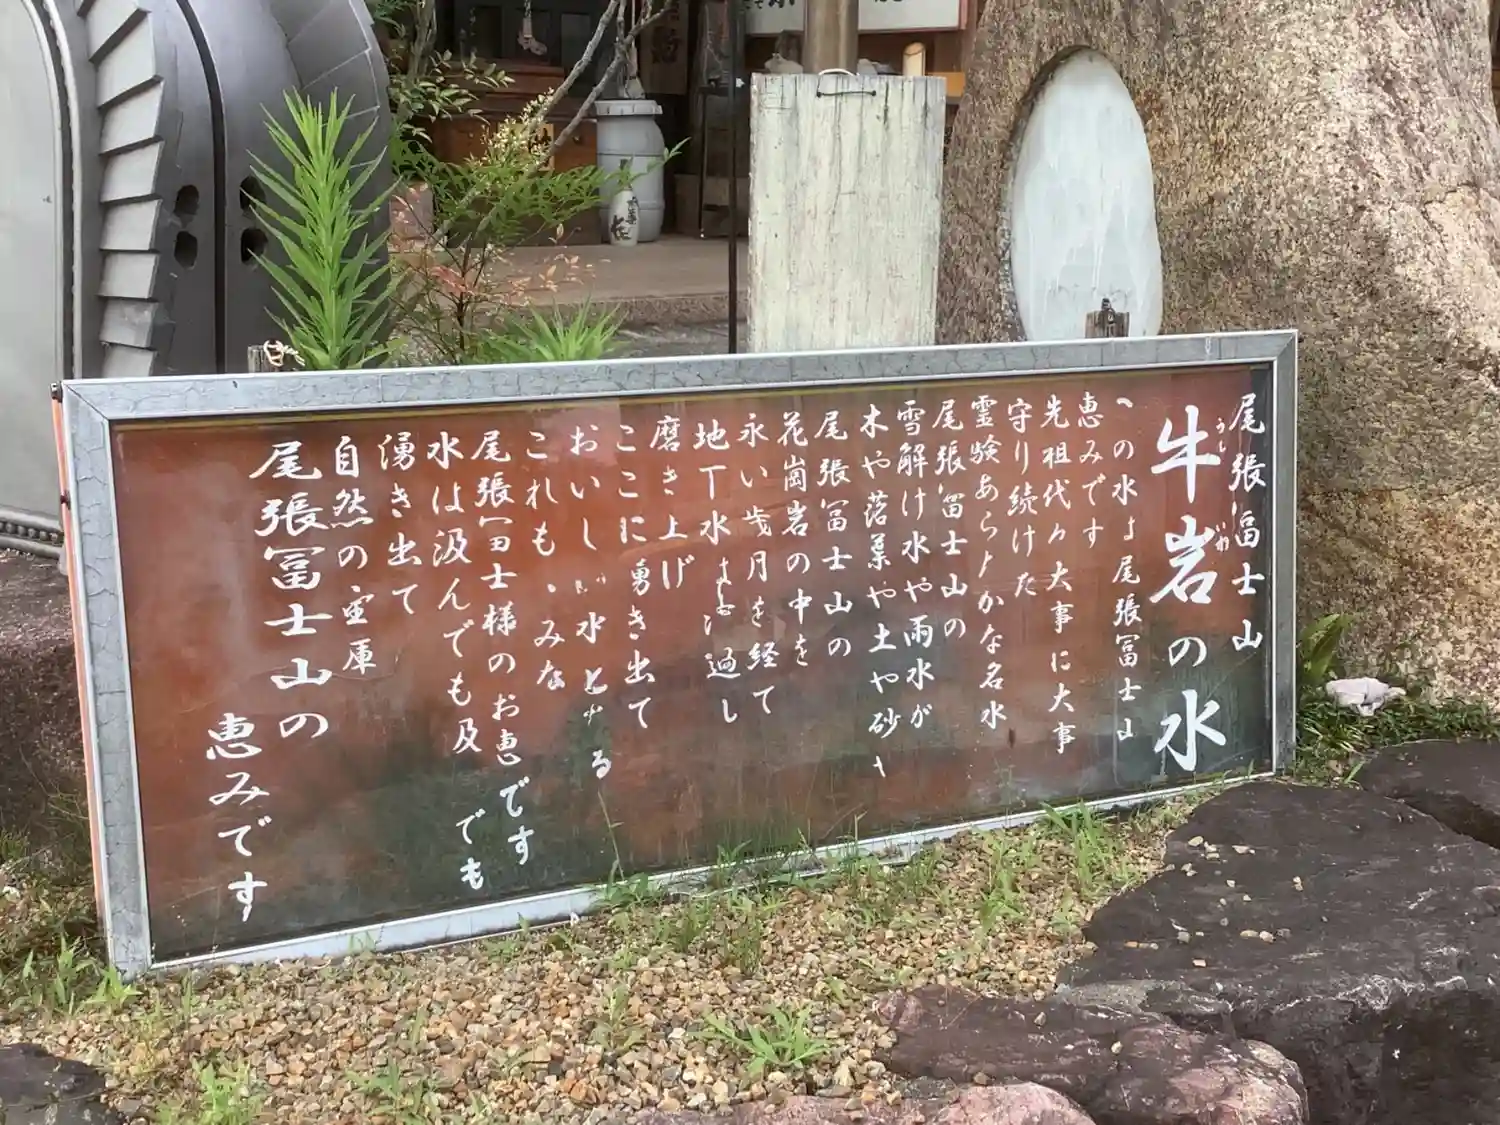 尾張冨士山
牛岩の水
うし いわ
この水は尾張冨士山
恵みです
先祖代々大事に大事
守り続けた
霊験あらたかな名水
尾張冨士山の
雪解け水や雨水が
木や落葉や土や砂
尾張冨士山の
花崗岩の中を
永い歳月を経て
地下水 過し
磨き上げ
ここに勇き出て
おいしい水となる
これも、みな
尾張冨士様のお恵です
水は汲んでも及 でも
湧き出て
自然の宝庫
尾張冨士山の
恵みです